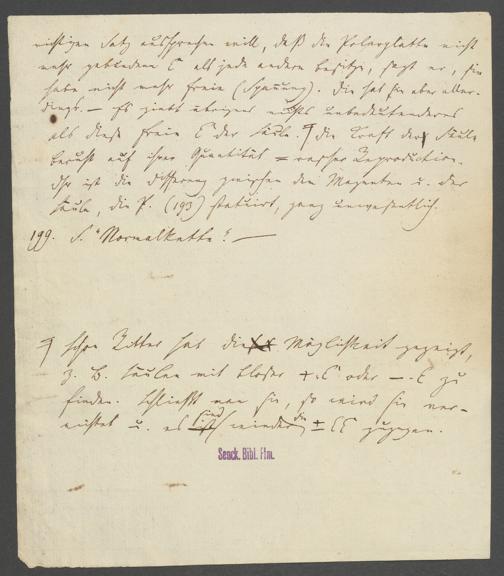 richtigen Satz aussprechen will, daß die Polarplatte nicht
mehr gebundene E als jede andere besitze, sagt er, sie
habe nicht mehr freie (Spannung). Die hat sie aber aller-
dings. — Es giebt übrigens nichts unbedeutenderes
als diese freie E der Säule. ¶ Die Kraft der Säule
beruht auf ihrer Quantität = rascher Reproduction.
Ihr ist die Differenz zwischen den Magneten u. der
Säule, die P. (193) statuirt, ganz unwesentlich.
199. S. "Normalkette". —
¶ Schon Ritter hat die Möglichkeit gezeigt,
z. B. Säulen mit bloser + E oder — E zu
finden. Schließt man sie, so wird sie ver-
nichtet u. es sind wieder die ± EE zugegen.
Senck. Bibl. Ffm.